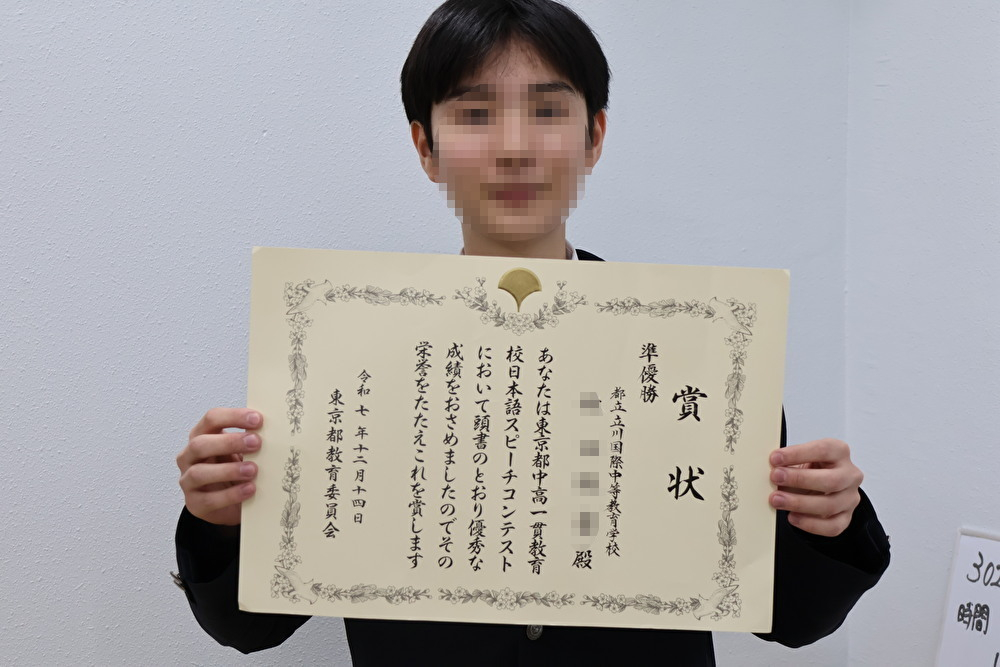 賞状
準優勝
都立立川国際中等教育学校
殿
あなたは東京都中高一貫教育
校日本語スピーチコンテスト
において頭書のとおり優秀な
成績をおさめましたのでその
栄誉をたたえこれを賞します
令和七年十二月十四日
東京都教育委員会
302
時間